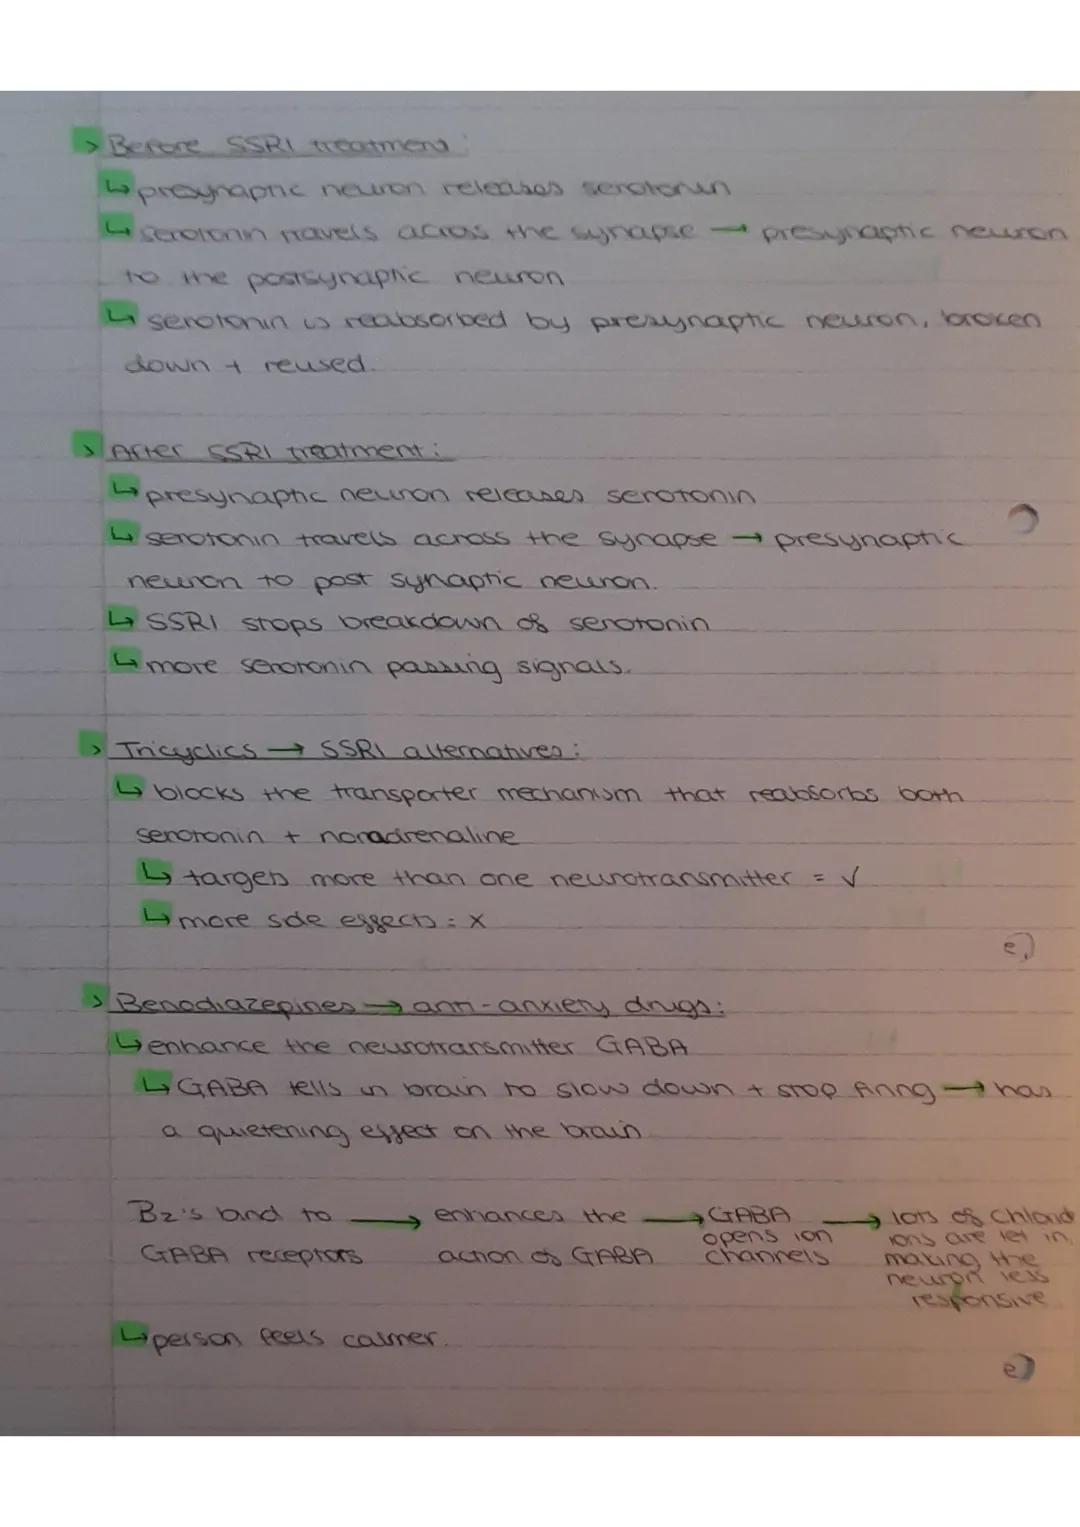 > Before SSRI treatment:
↳ presynaptic neuron releases serotonin
↳ serotonin travels across the synapse → presynaptic neuron
to the postsynaptic neuron
↳ serotonin is reabsorbed by presynaptic neuron, broken
down + reused.
> After SSRI treatment:
↳ presynaptic neuron releases serotonin
↳ serotonin travels across the synapse → presynaptic
neuron to post synaptic neuron.
↳ SSRI stops breakdown of serotonin
↳ more serotonin passing signals.
> Tricyclics → SSRI alternatives:
↳ blocks the transporter mechanism that reabsorbs both
serotonin + noradrenaline
↳ targets more than one neurotransmitter = ✓
↳ more side effects = X
> Benodiazepines → anti-anxiety drugs:
↳ enhance the neurotransmitter GABA
↳ GABA tells in brain to slow down + stop firing → has
a quietening effect on the brain
BZ's bind to → enhances the → GABA → lots of chlorid
opens ion ions are let in,
GABA receptors action of GABA channels making the
neuron less
responsive
↳ person feels calmer.